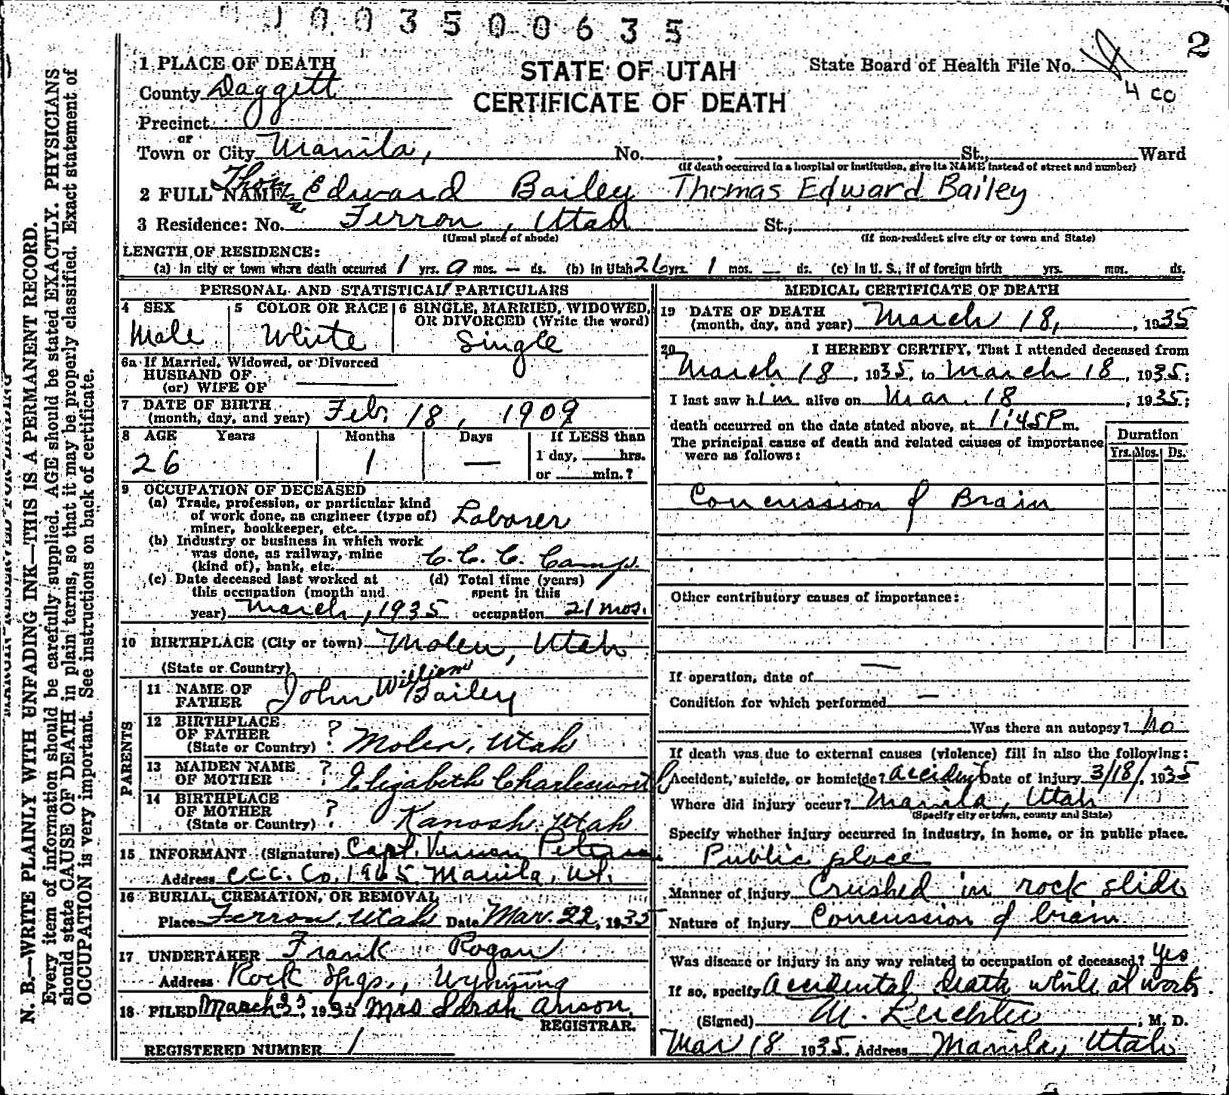 1003500635
2
STATE OF UTAH
CERTIFICATE OF DEATH
State Board of Health File No.
4 CO
1 PLACE OF DEATH
County Daggett
Precinct
or
Town or City Manila, No. , St., Ward
(If death occurred in a hospital or institution, give its NAME instead of street and number)
2 FULL NAME Thomas Edward Bailey Thomas Edward Bailey
3 Residence: No. Ferron, Utah St.,
(Usual place of abode) (If non-resident give city or town and State)
LENGTH OF RESIDENCE:
(a) In city or town where death occurred 1 yrs. 0 mos. — ds. (b) In Utah 26 yrs. 1 mos. — ds. (c) In U. S., if of foreign birth yrs. mos. ds.
PERSONAL AND STATISTICAL PARTICULARS
4 SEX Male
5 COLOR OR RACE White
6 SINGLE, MARRIED, WIDOWED, OR DIVORCED (Write the word) Single
6a If Married, Widowed, or Divorced
HUSBAND OF
(or) WIFE OF
7 DATE OF BIRTH
(month, day, and year) Feb. 18, 1909
8 AGE Years Months Days If LESS than
26 1 — 1 day, hrs.
or min.?
9 OCCUPATION OF DECEASED
(a) Trade, profession, or particular kind
of work done, as engineer (type of) Laborer
miner, bookkeeper, etc.
(b) Industry or business in which work
was done, as railway, mine C.C.C. Camp.
(kind of), bank, etc.
(c) Date deceased last worked at (d) Total time (years)
this occupation (month and spent in this
year) March, 1935 occupation 21 mos.
10 BIRTHPLACE (City or town) Molen, Utah
(State or Country)
PARENTS
11 NAME OF
FATHER John William Bailey
12 BIRTHPLACE
OF FATHER ? Molen, Utah
(State or Country)
13 MAIDEN NAME
OF MOTHER ? Elizabeth Charlesworth
14 BIRTHPLACE
OF MOTHER ? Kanosh, Utah
(State or Country)
15 INFORMANT (Signature) Capt. Vernon
Address C.C.C. Co. 1965 Manila, Ut.
16 BURIAL, CREMATION, OR REMOVAL
Place Ferron, Utah Date Mar. 22, 1935
17 UNDERTAKER Frank Rogan
Address Rock Spgs., Wyoming
18 FILED March 25 1935 Mrs Sarah
REGISTRAR.
REGISTERED NUMBER 1
MEDICAL CERTIFICATE OF DEATH
19 DATE OF DEATH
(month, day, and year) March 18, , 1935
20 I HEREBY CERTIFY, That I attended deceased from
March 18, 1935, to March 18, 1935;
I last saw him alive on Mar. 18, 1935;
death occurred on the date stated above, at 1:45P m.
The principal cause of death and related causes of importance
were as follows:
Duration
Yrs. Mos. Ds.
Concussion of Brain
Other contributory causes of importance:
If operation, date of —
Condition for which performed —
Was there an autopsy? No
If death was due to external causes (violence) fill in also the following:
Accident, suicide, or homicide? accident Date of injury 3/18/, 1935
Where did injury occur? Manila, Utah
(Specify city or town, county and State)
Specify whether injury occurred in industry, in home, or in public place.
Public place
Manner of injury Crushed in rock slide
Nature of injury Concussion of brain
Was disease or injury in any way related to occupation of deceased? Yes
If so, specify Accidental death while at work.
(Signed) M. , M. D.
Mar 18 1935. Address Manila, Utah
N. B.—WRITE PLAINLY WITH UNFADING INK—THIS IS A PERMANENT RECORD.
Every item of information should be carefully supplied. AGE should be stated EXACTLY. PHYSICIANS
should state CAUSE OF DEATH in plain terms, so that it may be properly classified. Exact statement of
OCCUPATION is very important. See instructions on back of certificate.